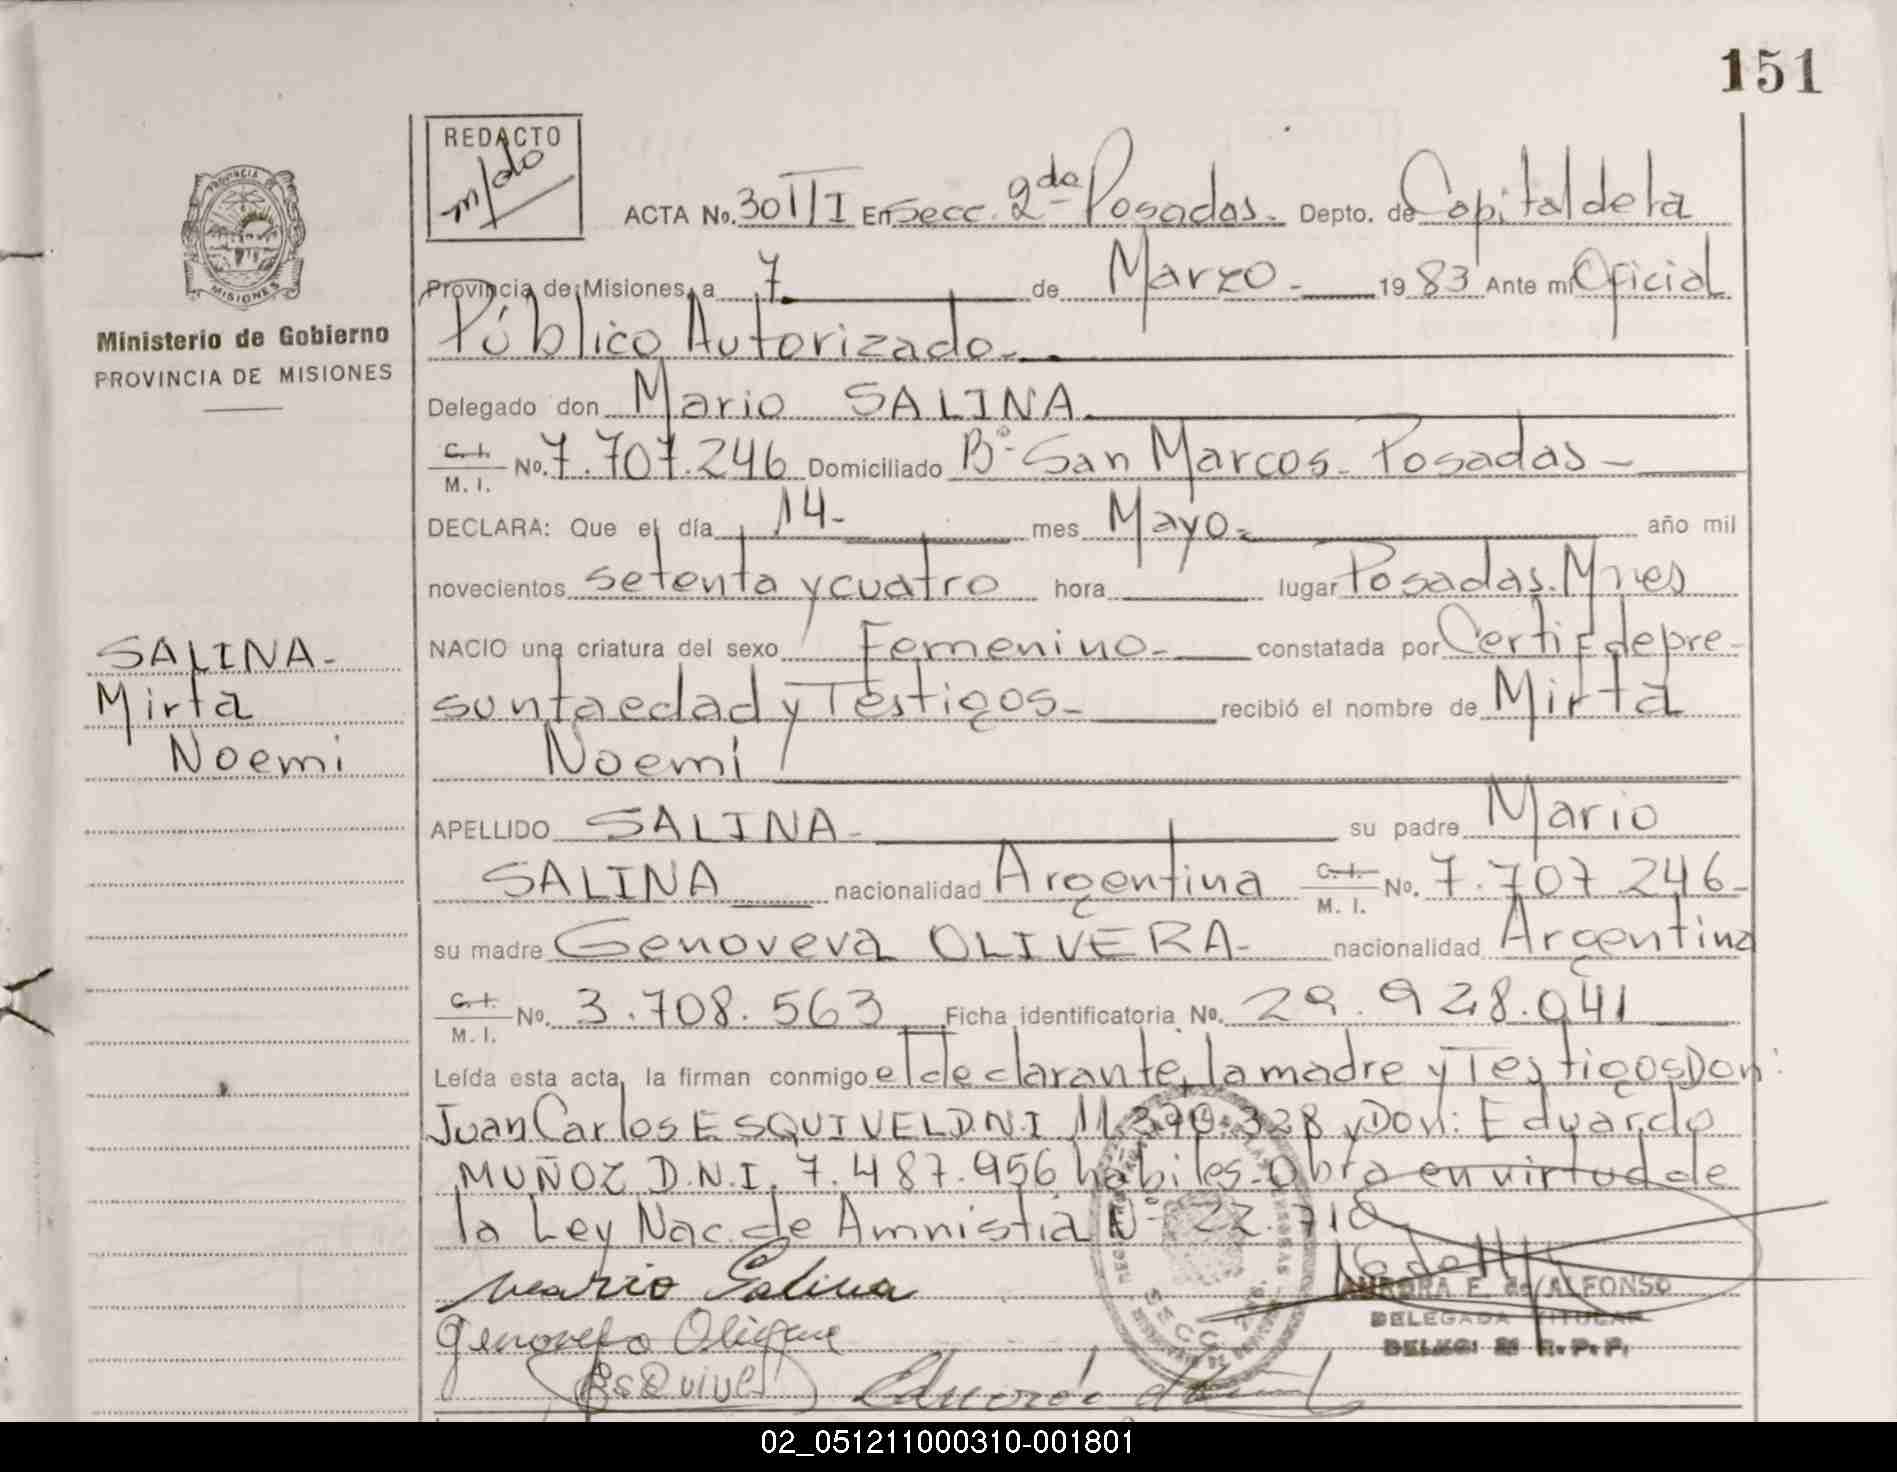 151
REDACTO
PROVINCIA DE
MISIONES
ACTA No. 301 T/I En Secc. 2da Posadas. Depto. de Capital de la
Provincia de Misiones, a 7 de Marzo - 1983 Ante mi Oficial
Público Autorizado -
Ministerio de Gobierno
PROVINCIA DE MISIONES
Delegado don Mario SALINA.
C. I. M. I. No. 7.707.246 Domiciliado Bº San Marcos - Posadas -
DECLARA: Que el día 14 - mes Mayo - año mil
novecientos setenta y cuatro hora lugar Posadas. Mnes
NACIO una criatura del sexo Femenino - constatada por Certif de pre-
sunta edad y Testigos - recibió el nombre de Mirta
Noemi
SALINA -
Mirta
Noemi
APELLIDO SALINA - su padre Mario
SALINA nacionalidad Argentina C. I. M. I. No. 7.707 246 -
su madre Genoveva OLIVERA - nacionalidad Argentina
C. I. M. I. No. 3.708.563 Ficha identificatoria No. 29.928.041
Leída esta acta, la firman conmigo el declarante, la madre y Testigos Don:
Juan Carlos ESQUIVEL D.N.I 11.390.328 y Don: Eduardo
MUÑOZ D.N.I. 7.487.956 habiles - Obra en virtud de
la Ley Nac. de Amnistia Nº 22.710
Mario Salina
AURORA E. de ALFONSO
DELEGADA TITULAR
Genoveva
Esquivel
SECC. 2da
02_051211000310-001801